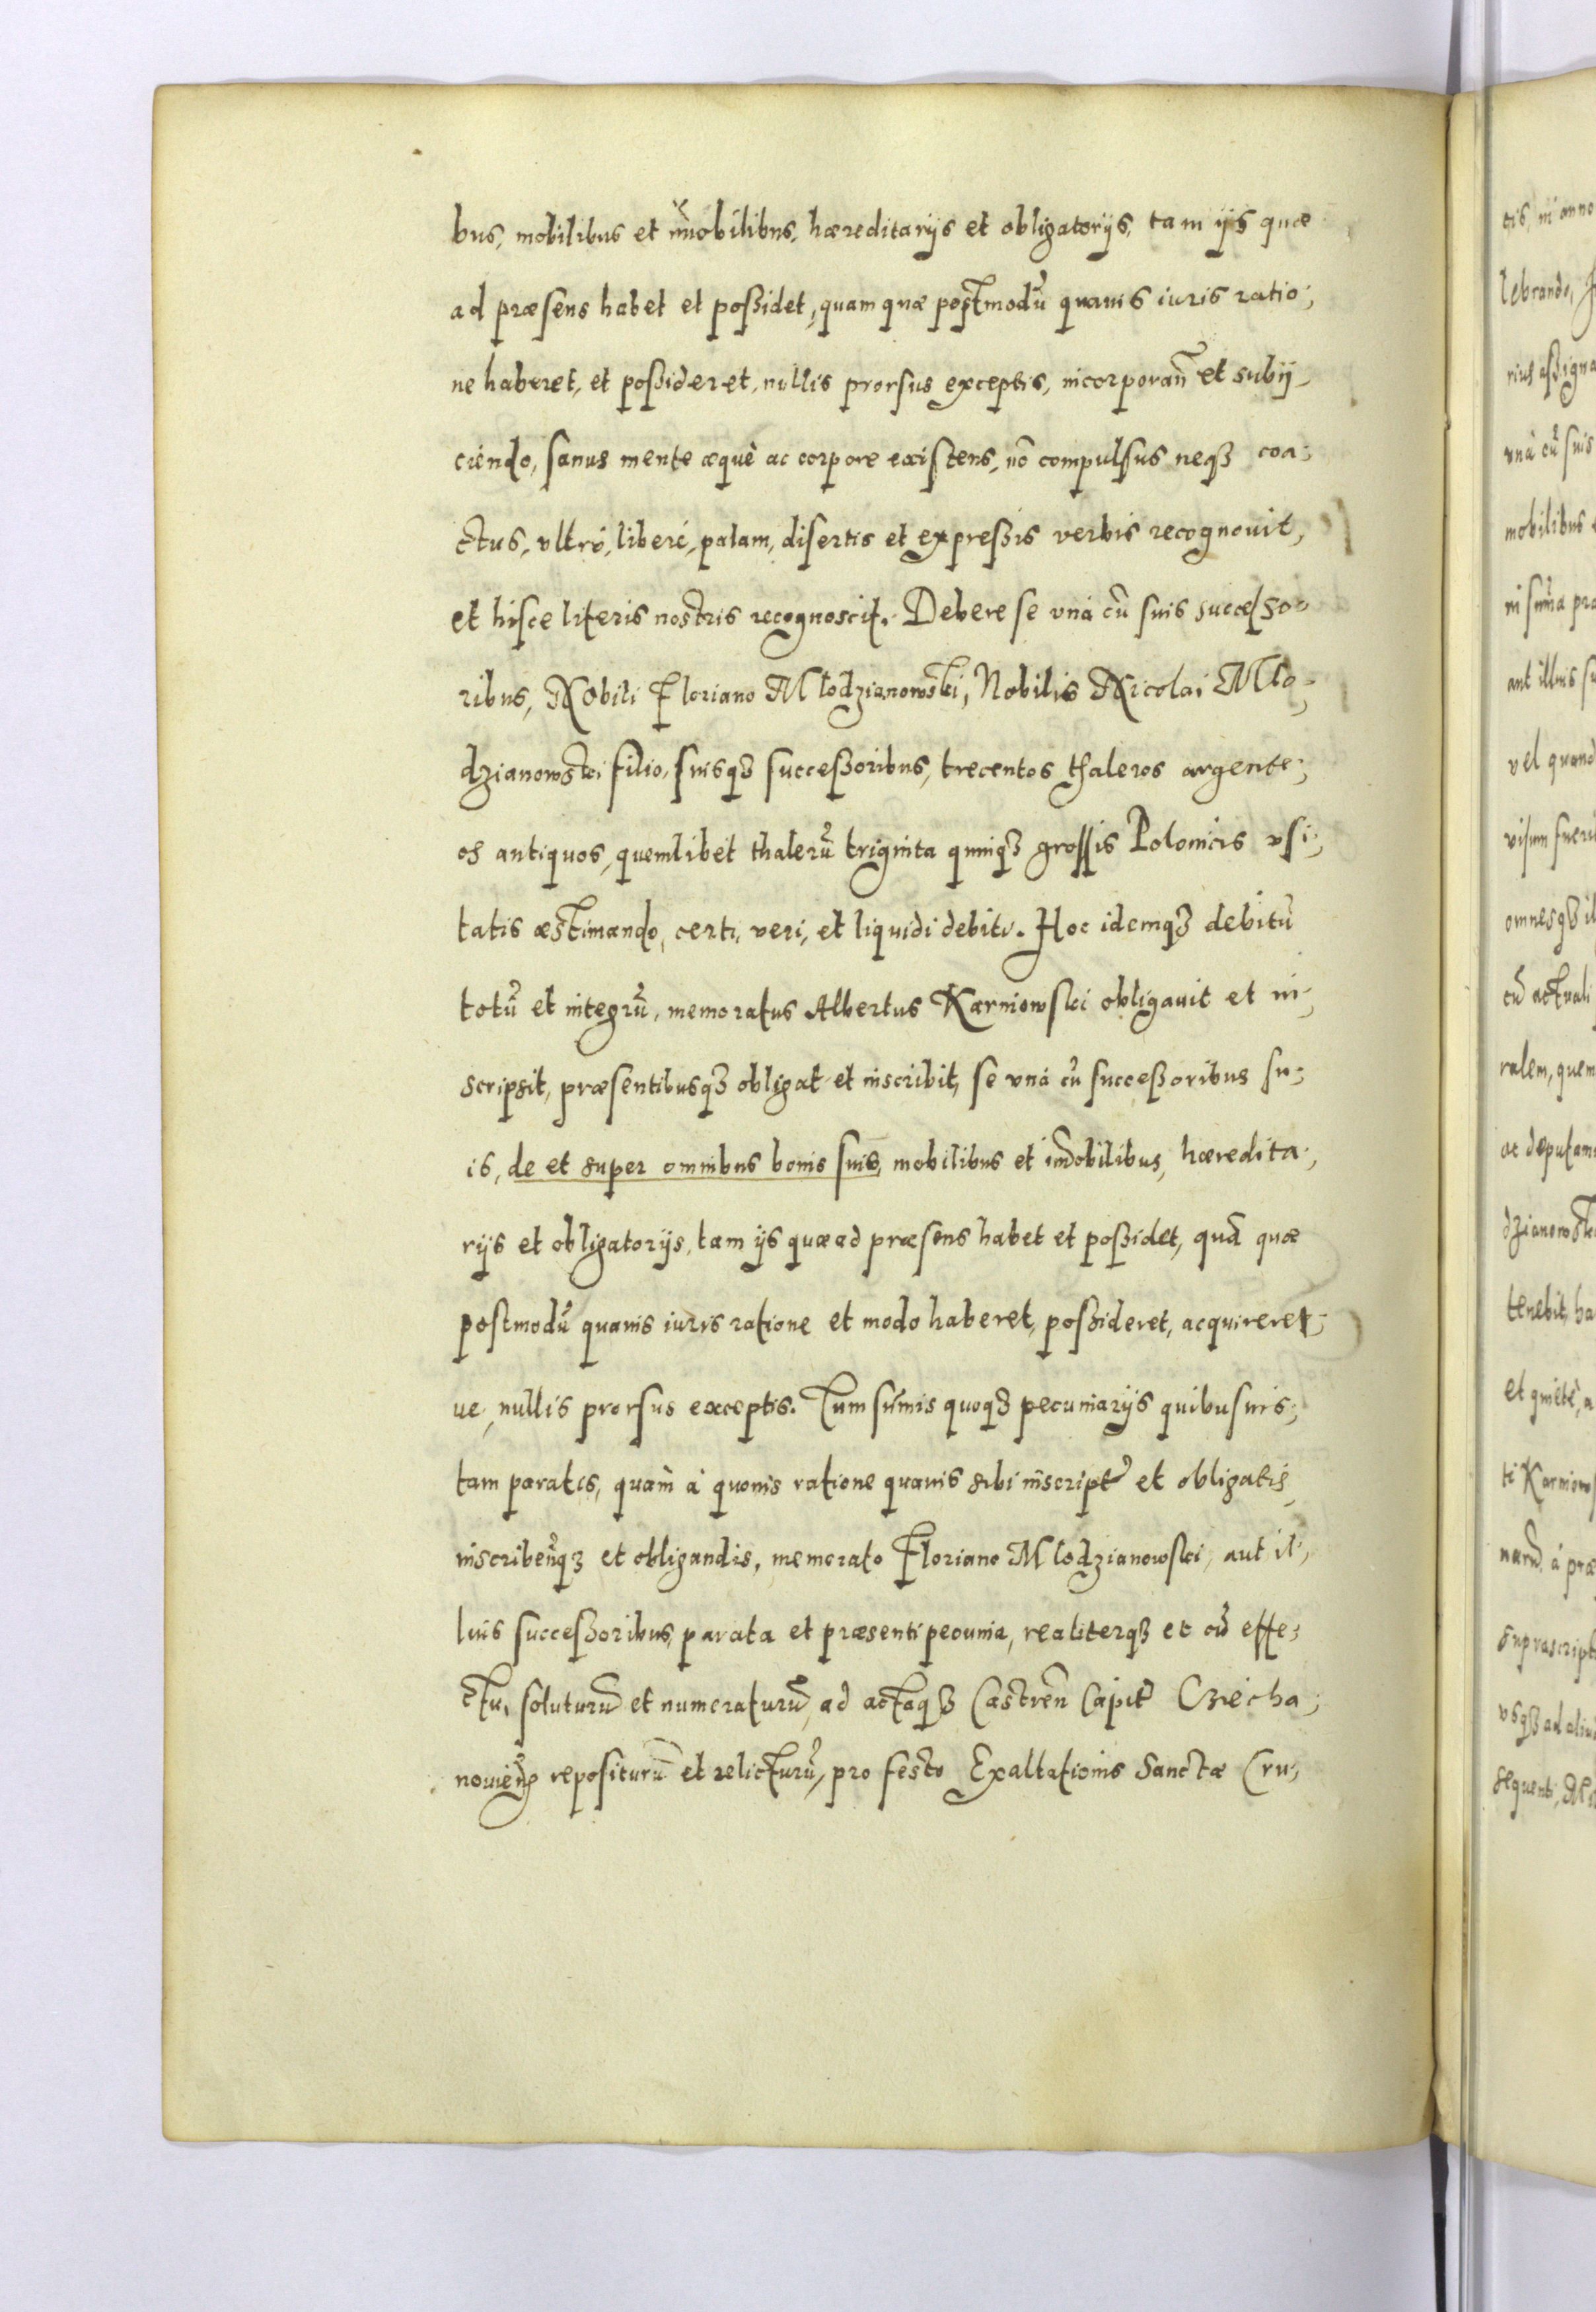 bus, mobilibus et im̃obilibus, hæreditarijs et obligatorijs, tam ijs quæ
ad præsens habet et poßidet, quam quæ postmodũ quauis iuris ratio-
ne haberet, et poßideret, nullis prorsus exceptis, incorporañ et subij-
ciendo, sanus mente æquè ac corpore existens, nõ compulsus neqз coa-
ctus, vltrò, liberè, palam, disertis et expreßis verbis recognouit,
et hisce literis nostris recognoscit. Debere se vnà cũ suis successo-
ribus, Nobili Floriano Mlodzianowski, Nobilis Nicolai Mlo-
dzianowski filio, suisqз succeßoribus, trecentos thaleros argente-
os antiquos, quemlibet thalerũ triginta quinqз grossis Polonicis vsi-
tatis æstimando, certi, veri, et liquidi debiti. Hoc idemqз debitũ
totũ et integrũ, memoratus Albertus Karniowski obligauit et in-
scripsit, præsentibusqз obligat et inscribit, se vnà cũ succeßoribus su-
is, de et super omnibus bonis suis, mobilibus et im̃obilibus, hæredita-
rijs et obligatorijs, tam ijs quæ ad præsens habet et poßidet, quã quæ
postmodũ quauis iuris ratione et modo haberet, poßideret, acquireret-
ue, nullis prorsus exceptis. Tum sum̃is quoqз pecuniarijs quibusuis,
tam paratis, quàm à quouis ratione quauis sibi inscript̃ et obligatis,
inscribeñqз et obligandis, memorato Floriano Mlodzianowski, aut il-
lius succeßoribus, parata et præsenti pecunia, realiterqз et cũ effe-
ctu, soluturũ et numeraturũ, ad actaqз Castreñ Capit̃ Cziecha-
nouieñ repositurũ et relicturũ, pro festo Exaltationis Sanctæ Cru-